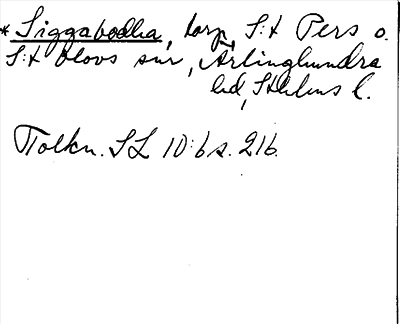 * Siggabodha, torp, S:t Pers o.
S:t Olovs snr, Ärlinghundra
hd, Sthlms l.
Tolkn. SL 10:6 s. 216.